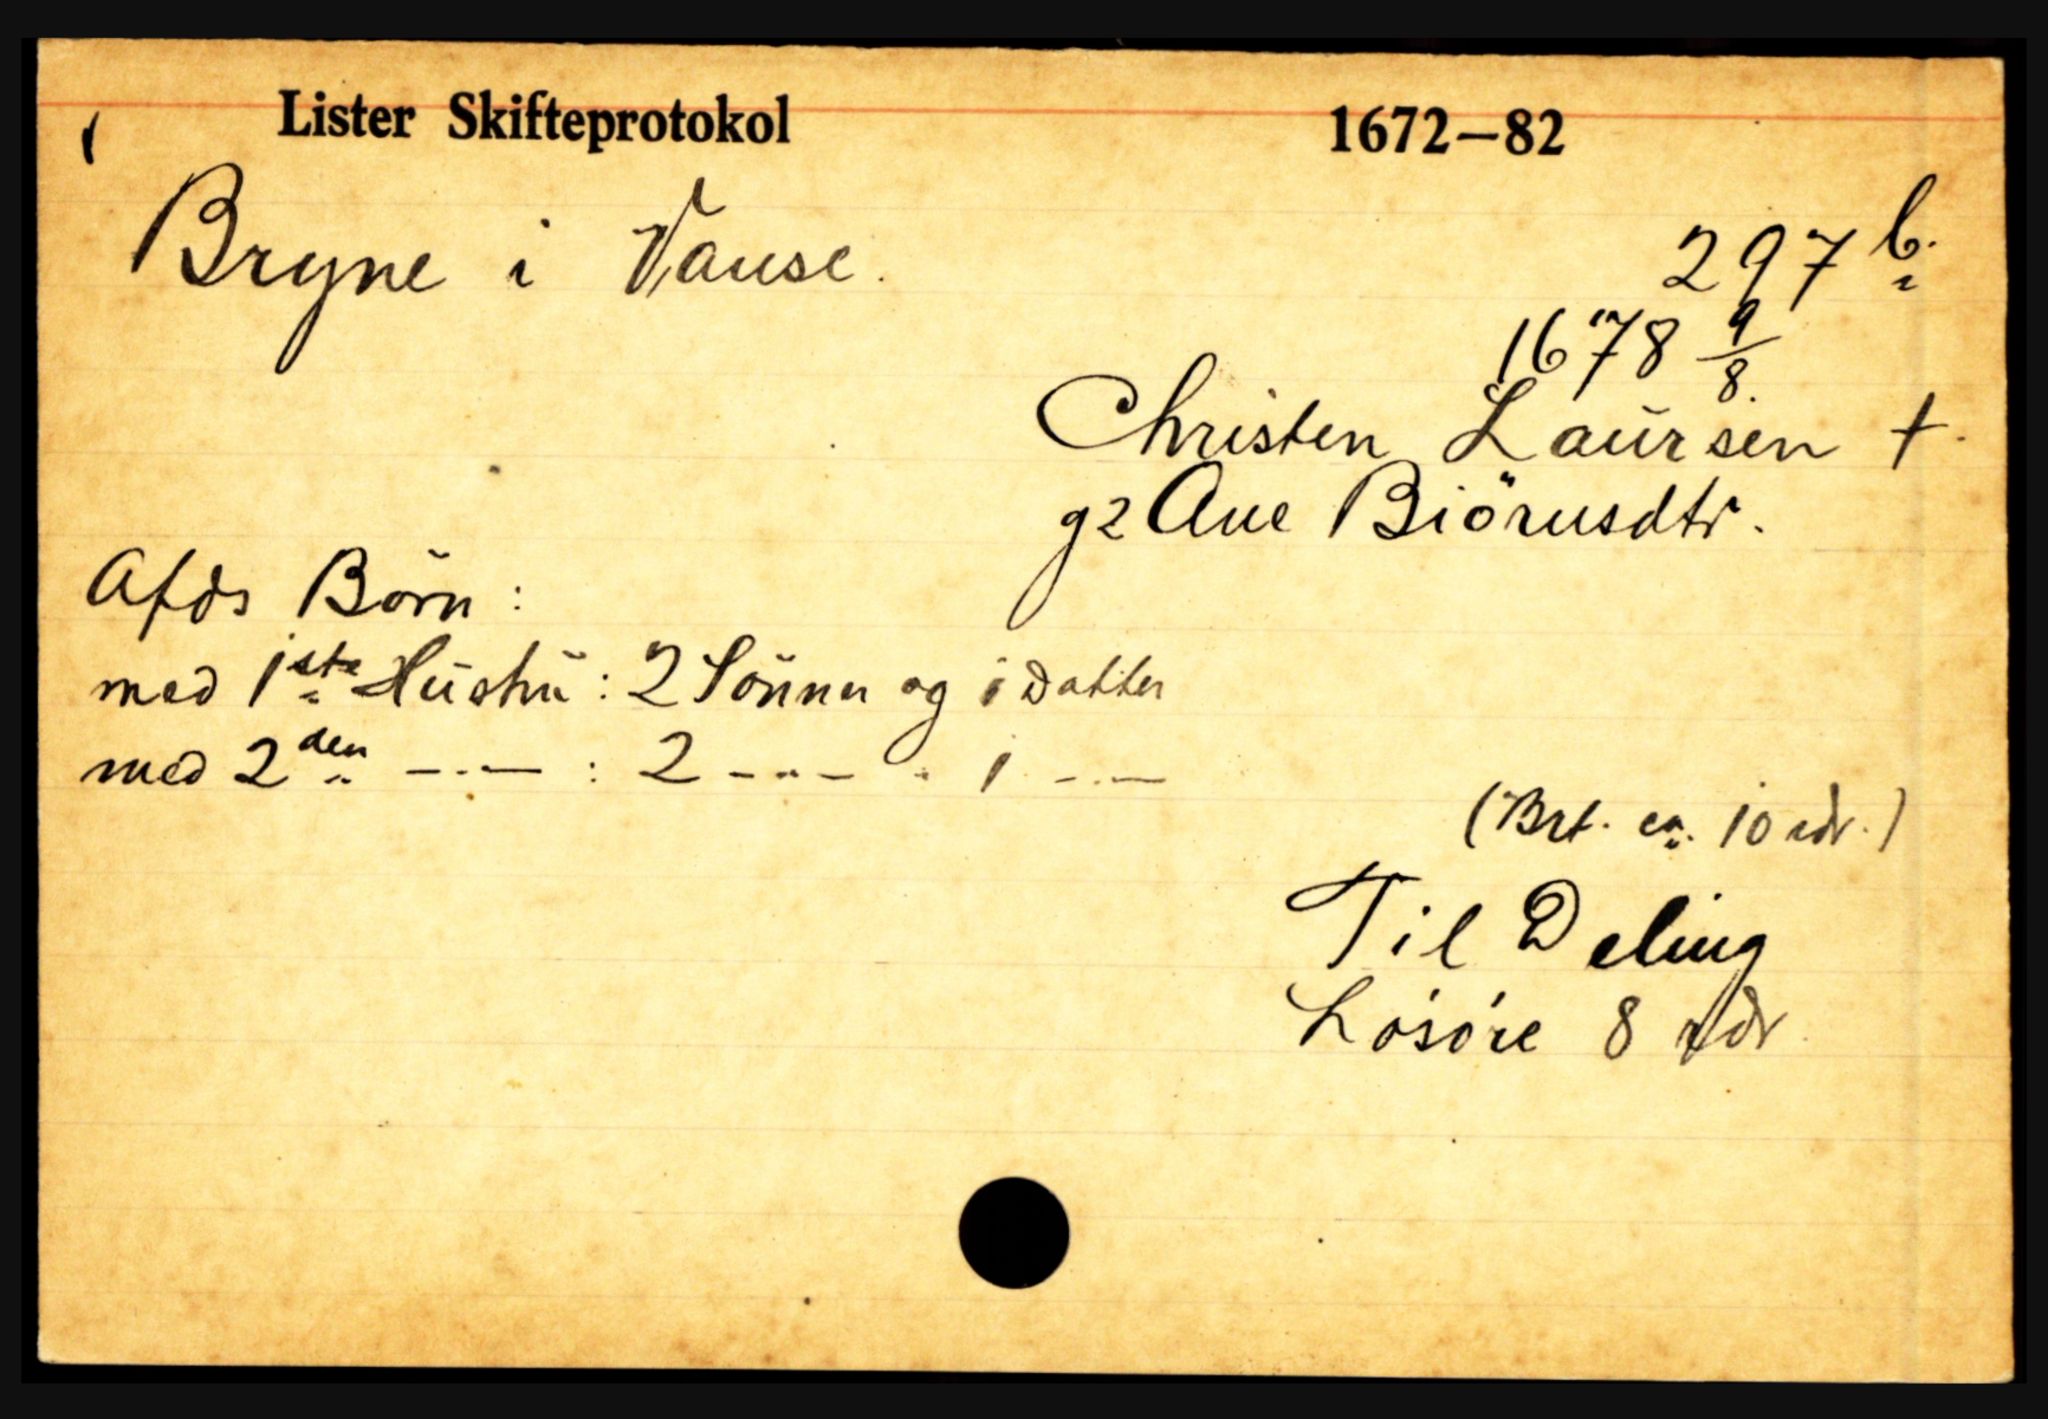 Lister Skifteprotokol 1672–82
Bryne i Vanse.
297 b.
1678 9/8.
Christen Laursen †.
g 2 Ane Biörnsdtr.
Afds Börn:
med 1ste Hustru: 2 Sönner og 1 Datter
med 2den —·—: 2 —··— · 1 —·—
(Brt. ca. 10 rdr.)
Til Deling
Lösöre 8 rdr